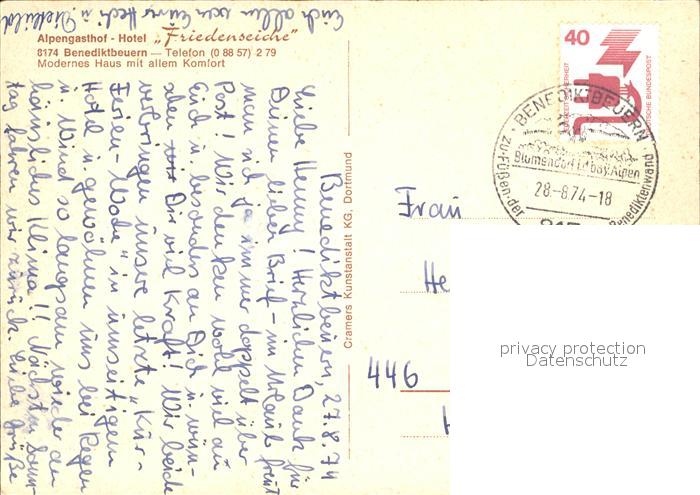 Alpengasthof - Hotel „Friedenseiche"
8174 Benediktbeuern — Telefon (0 88 57) 2 79
Modernes Haus mit allem Komfort
Benediktbeuern, 27.8.74
Liebe Henny! Herzlichen Dank für
Deinen lieben Brief - im Urlaub freut
man sich ja immer doppelt über
Post! Wir denken wohl viel an
Euch u. besonders an Dich u. wün-
schen Dir viel Kraft! Wir beide
verbringen unsere letzte „Kur-
Ferien-Woche" im
Hotel u. gewöhnen uns bei Regen
u. Wind so langsam wieder an
häusliches Klima!! Nächsten Sonn-
tag fahren wir zurück. Liebe Grüße
Euch allen von Eurer
Cramers Kunstanstalt KG, Dortmund
40
DEUTSCHE BUNDESPOST
BENEDIKTBEUERN
Blumendorf i.d. bay. Alpen
28-8.74-18
zu Füßen der Benediktenwand
817
Frau
He
446
privacy protection
Datenschutz